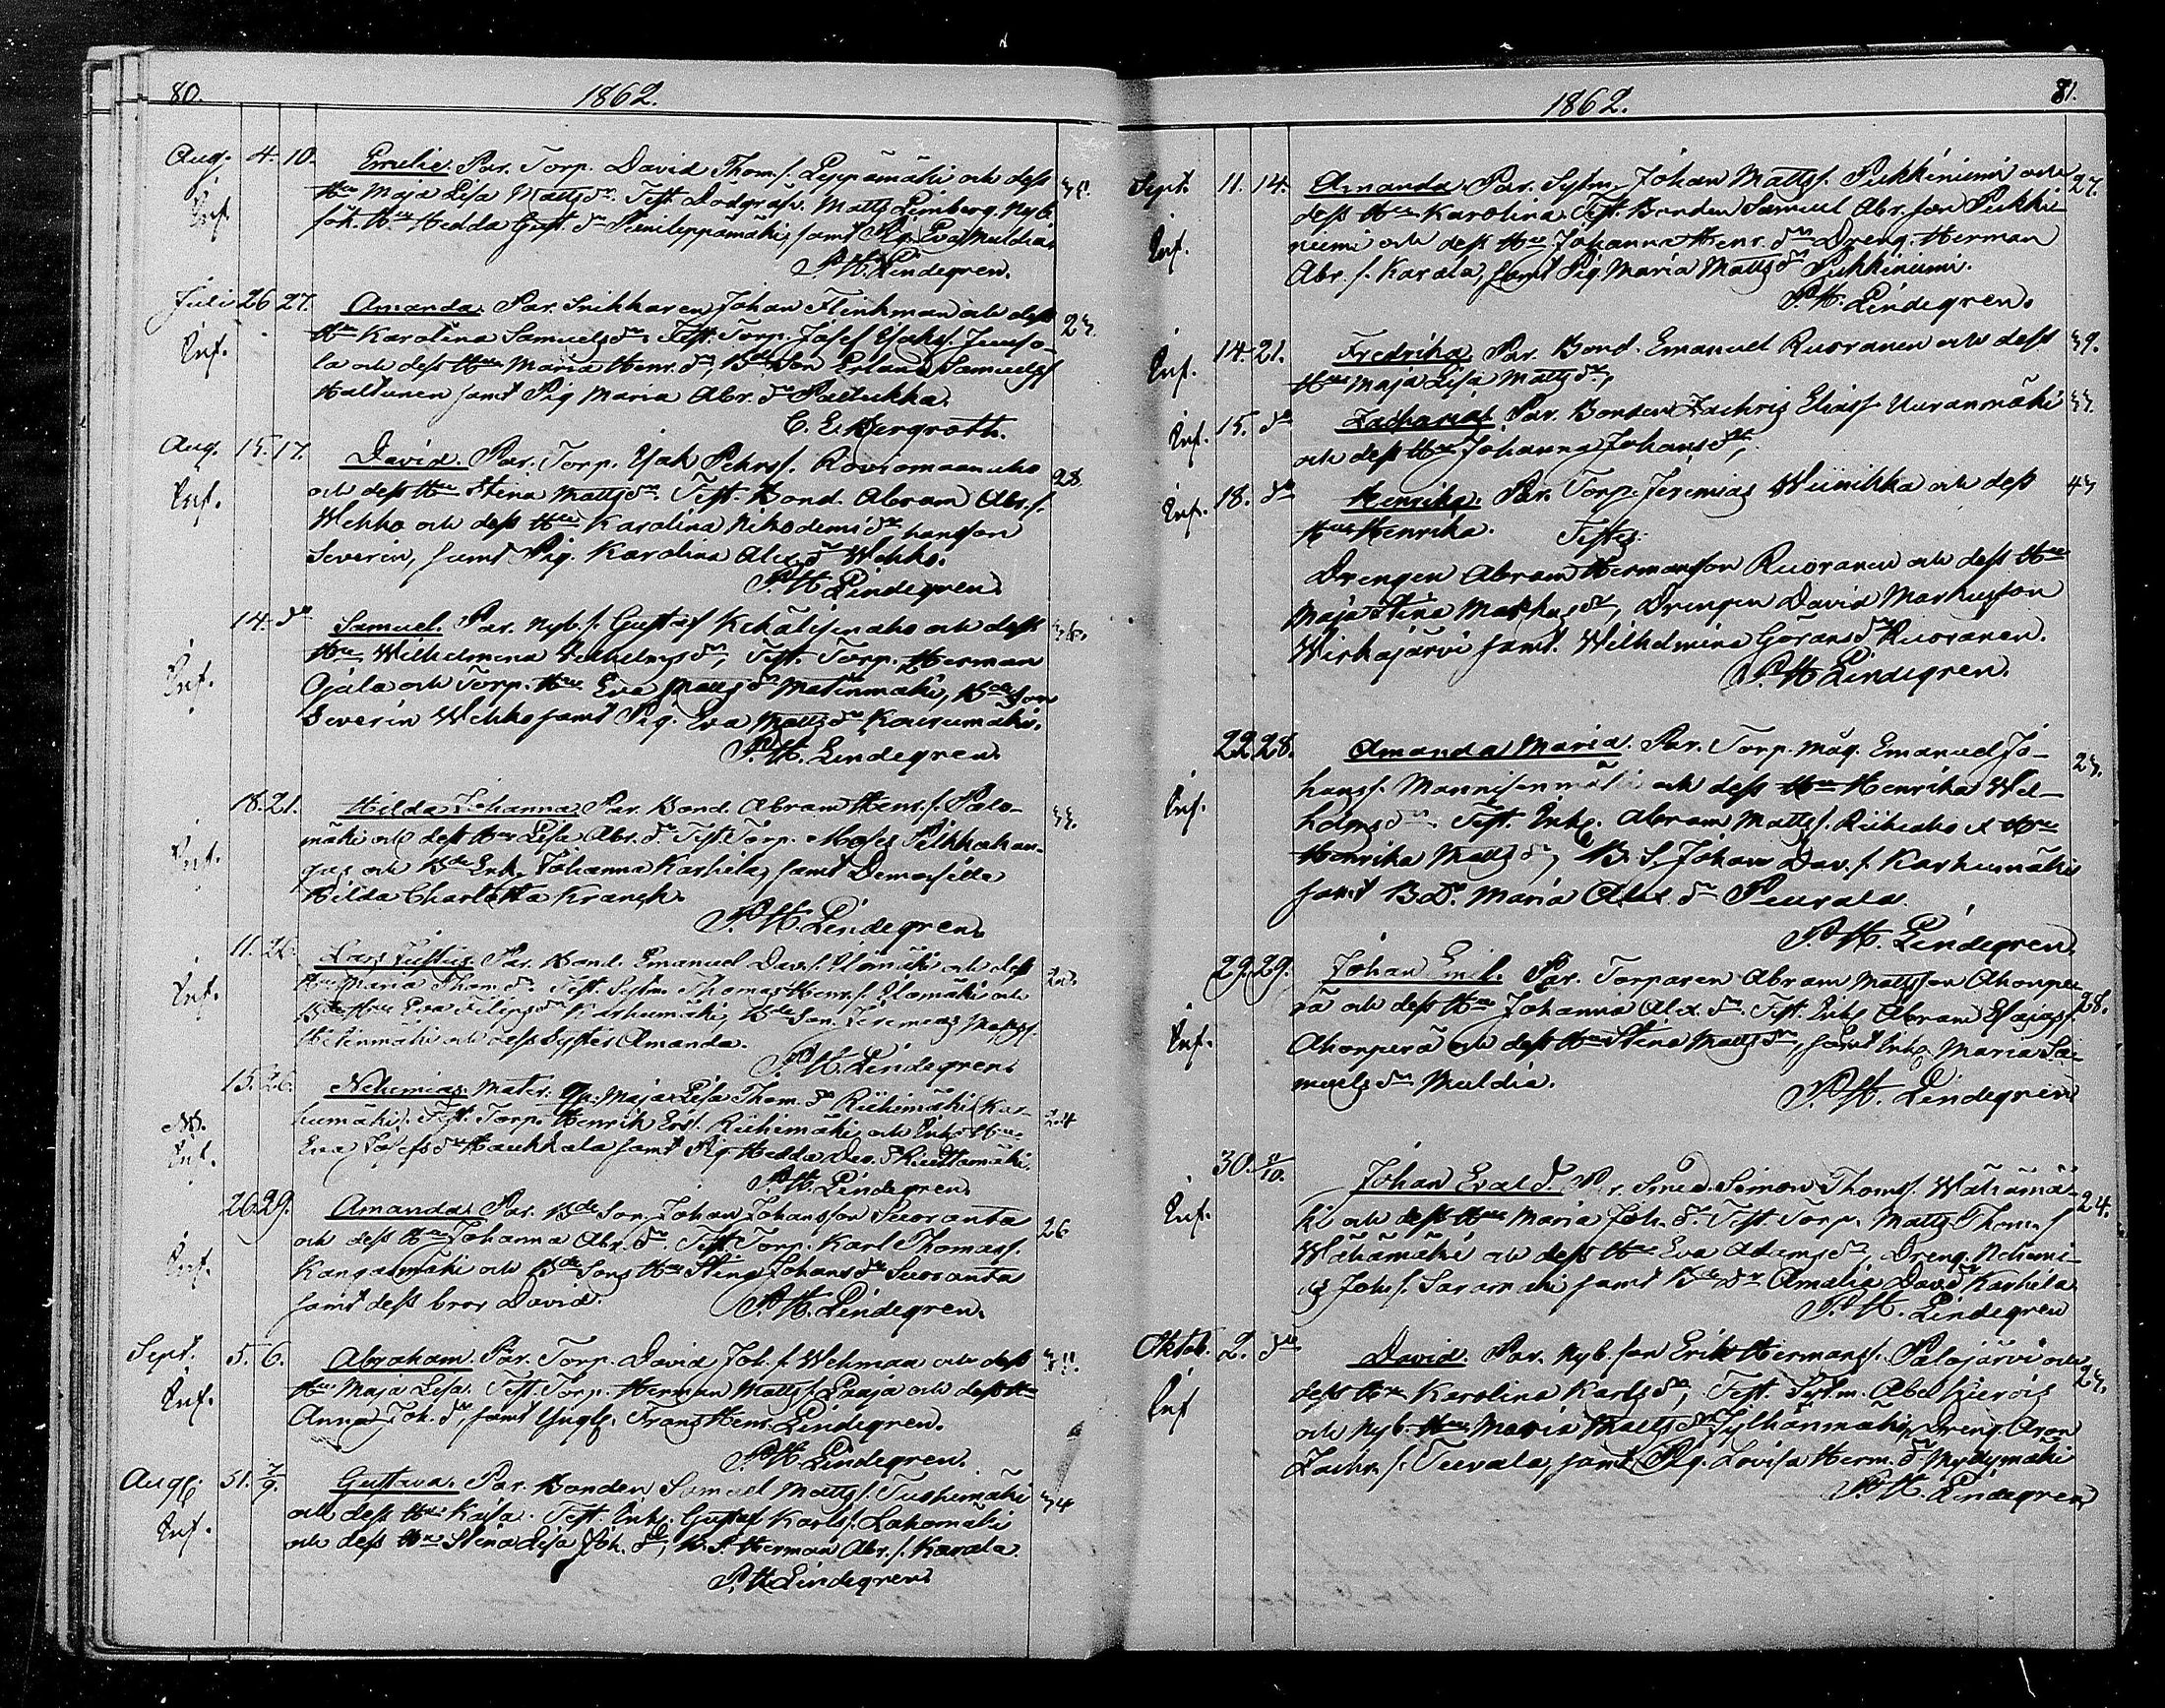 80.
1862.
Aug. 4. 10. Emelie. Par. Torp. David Thom.s. Leppämäki och dess
Inf. Hu Maja Lisa Mattsdr. Test. Dödgräfv. Matts Limberg, Nyb.
Hu Hedda Gust.dr samt Pig. Eva Muldia.
P.H. Lindegren.
Juli 26 27. Amanda. Par. Johan Flinkman och dess 23.
Inf. Hu Karolina Samuelsdr. Test. Torp. Josef Isaks. Jusso-
la och dess Hu Maria Henr.dr, Bdeson Erland Samuelss
Haltunen samt Pig Maria Abr.dr Paltukka.
C. E. Bergroth.
Aug. 15. 17. David. Par. Torp. Isak Pehrs. Roviomaanaho 28
Inf. och dess Hu Stina Mattsdr. Test. Bond. Abram Abr.s.
Wehko och dess Hu Karolina Nikodemidr, hans son
Severin, samt Pig. Karolina Alex.dr Wehko.
P.H. Lindegren.
14. do Samuel. Par. Nyb.s. Gustaf Kekälisenaho och dess
Inf. Hu Wilhelmina Wilhelmsdr, Test. Torp. Herman
Ojala och Torp. Hu Eva Mattsdr Matinmäki, Bdeson
Severin Wehko samt Pig. Eva Mattsdr Kaurumäki.
P.H. Lindegren.
18. 21. Hilda Johanna. Par. Bond. Abram Henr.s. Palo- 33.
Inf. mäki och dess Hu Lisa Abr.dr. Test. Torp. Moses Pilkkakan-
gas och Bde Enk. Johanna Karhila, samt Demoiselle
Hilda Charlotta Kranck.
P.H. Lindegren.
11. 26. Lars Justus. Par. Bond. Emanuel Dav.s. Ulomäki och dess
Inf. Hu Maria Thom.dr. Test. Sytn. Thomas Henr.s. Ulomäki och
Bde Hu Eva Filipsdr Karhumäki, Bdeson. Jeremias
och dess syster Amanda.
P.H. Lindegren.
15. 26. Nehemias. Mater. Maja Lisa Thom.dr Riihimäki (Kar- 24
Inf. humäki). Test. Torp. Henrik Riihimäki och Inh. Hu
Eva Josefsdr Haukkala samt Pig. Hedda Dav.dr
P.H. Lindegren.
26. 29. Amanda. Par. Bdeson Johan Johansson Suoranta 26
Inf. och dess Hu Johanna Abr.dr. Test. Torp. Karl Thomass.
Kangasmäki och Bdesons Hu Stina Johansdr Suoranta
samt dess bror David. P.H. Lindegren.
Sept. 5. 6. Abraham. Par. Torp. David Joh.s. Wehmaa och dess
Inf. Hu Maja Lisa. Test. Torp. Herman Mattss. Laaja och dess Hu
Anna Joh.dr, samt Yngl. Frans Henr. Lindegren.
P.H. Lindegren.
Aug. 31. 7/9. Gustava. Par. Bonden Samuel Matts.s. Tuohimäki 34
Inf. och dess Hu Kaisa. Test. Inh. Gustaf Karls.s. Lahomäki
och dess Hu Stina Lisa Joh.dr, B.S. Herman Abr.s. Karala.
P.H. Lindegren.
1862.
81.
Sept. 11. 14. Amanda. Par. Sytn. Johan Mattss. Pukkiniemi och 27.
Inf. dess Hu Karolina. Test. Bonden Samuel Abr.son Pukki-
niemi och dess Hu Johanna Henr.dr, Dreng. Herman
Abr.s. Karala, samt Pig. Maria Mattsdr Pukkiniemi.
P.H. Lindegren.
Inf. 14. 21. Fredrika. Par. Bond. Emanuel Ruoranen och dess 39.
Hu Maja Lisa Mattsdr,
Inf. 15. do Zacharias. Par. Bonden Zachris Eliass. Uuranmäki 33.
och dess Hu Johanna Johansdr,
Inf. 18. do Henrika. Par. Torp. Jeremias Wiinikka och dess 43
Hu Henrika. Testes:
Drengen Abram Hermansson Ruoranen och dess Hu
Maja Stina Markusdr, Drengen David Markusson
Wirkajärvi samt. Wilhelmina Göransdr Ruoranen.
P.H. Lindegren.
22. 28. Amanda Maria. Par. Torp. måg. Emanuel Jo- 23.
Inf. hanss. Mannisenmäki och dess Hu Henrika Wil-
helmsdr. Test. Inh. Abram Mattss. Riihiaho et Hu
Henrika Mattsdr, B.S. Johan Dav.s. Karhumäki
samt B.D. Maria Alex.dr Peurala.
P.H. Lindegren.
29. 29. Johan Emil. Par. Torparen Abram Mattsson Ahonpe- 28.
Inf. rä och dess Hu Johanna Alex.dr. Test. Inh. Abram Esaiass.
Ahonperä och dess Hu Stina Mattsdr, samt Inh. Maria Sa-
muelsdr Muldia. P.H. Lindegren
30. 5/10. Johan Evald. Par. Smed. Simon Thoms. Wähämä- 24.
Inf. ki och dess Hu Maria Joh.dr. Test. Torp. Matts Thom.s
Wähämäki och dess Hu Eva Adamsdr, Dreng. Nehemi-
as Joh.s. Saramäki samt Bdedr Amalia Dav.dr Karhila
P.H. Lindegren
Oktob. 2. do David. Par. Nyb.son Erik Hermanss. Palojärvi och 23.
Inf dess Hu Karolina Karlsdr, Test. Sytn. Abel
och Nyb. Hu Maria Mattsdr Jylhänmäki, Dreng. Aron
Zachr.s. Teevala, samt Pig. Lovisa Herm.dr Myllymäki
P.H. Lindegren